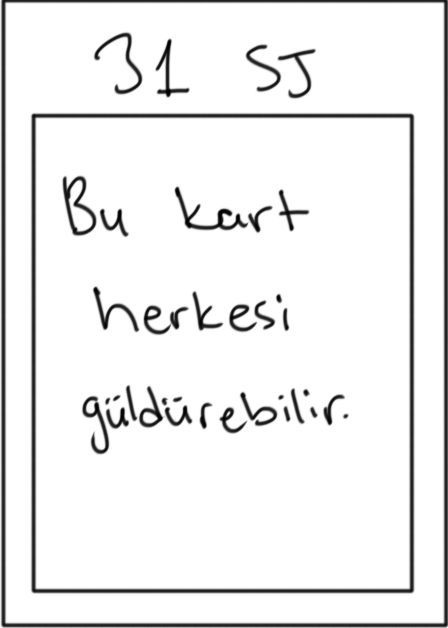 31 SJ
Bu kart
herkesi
güldürebilir.